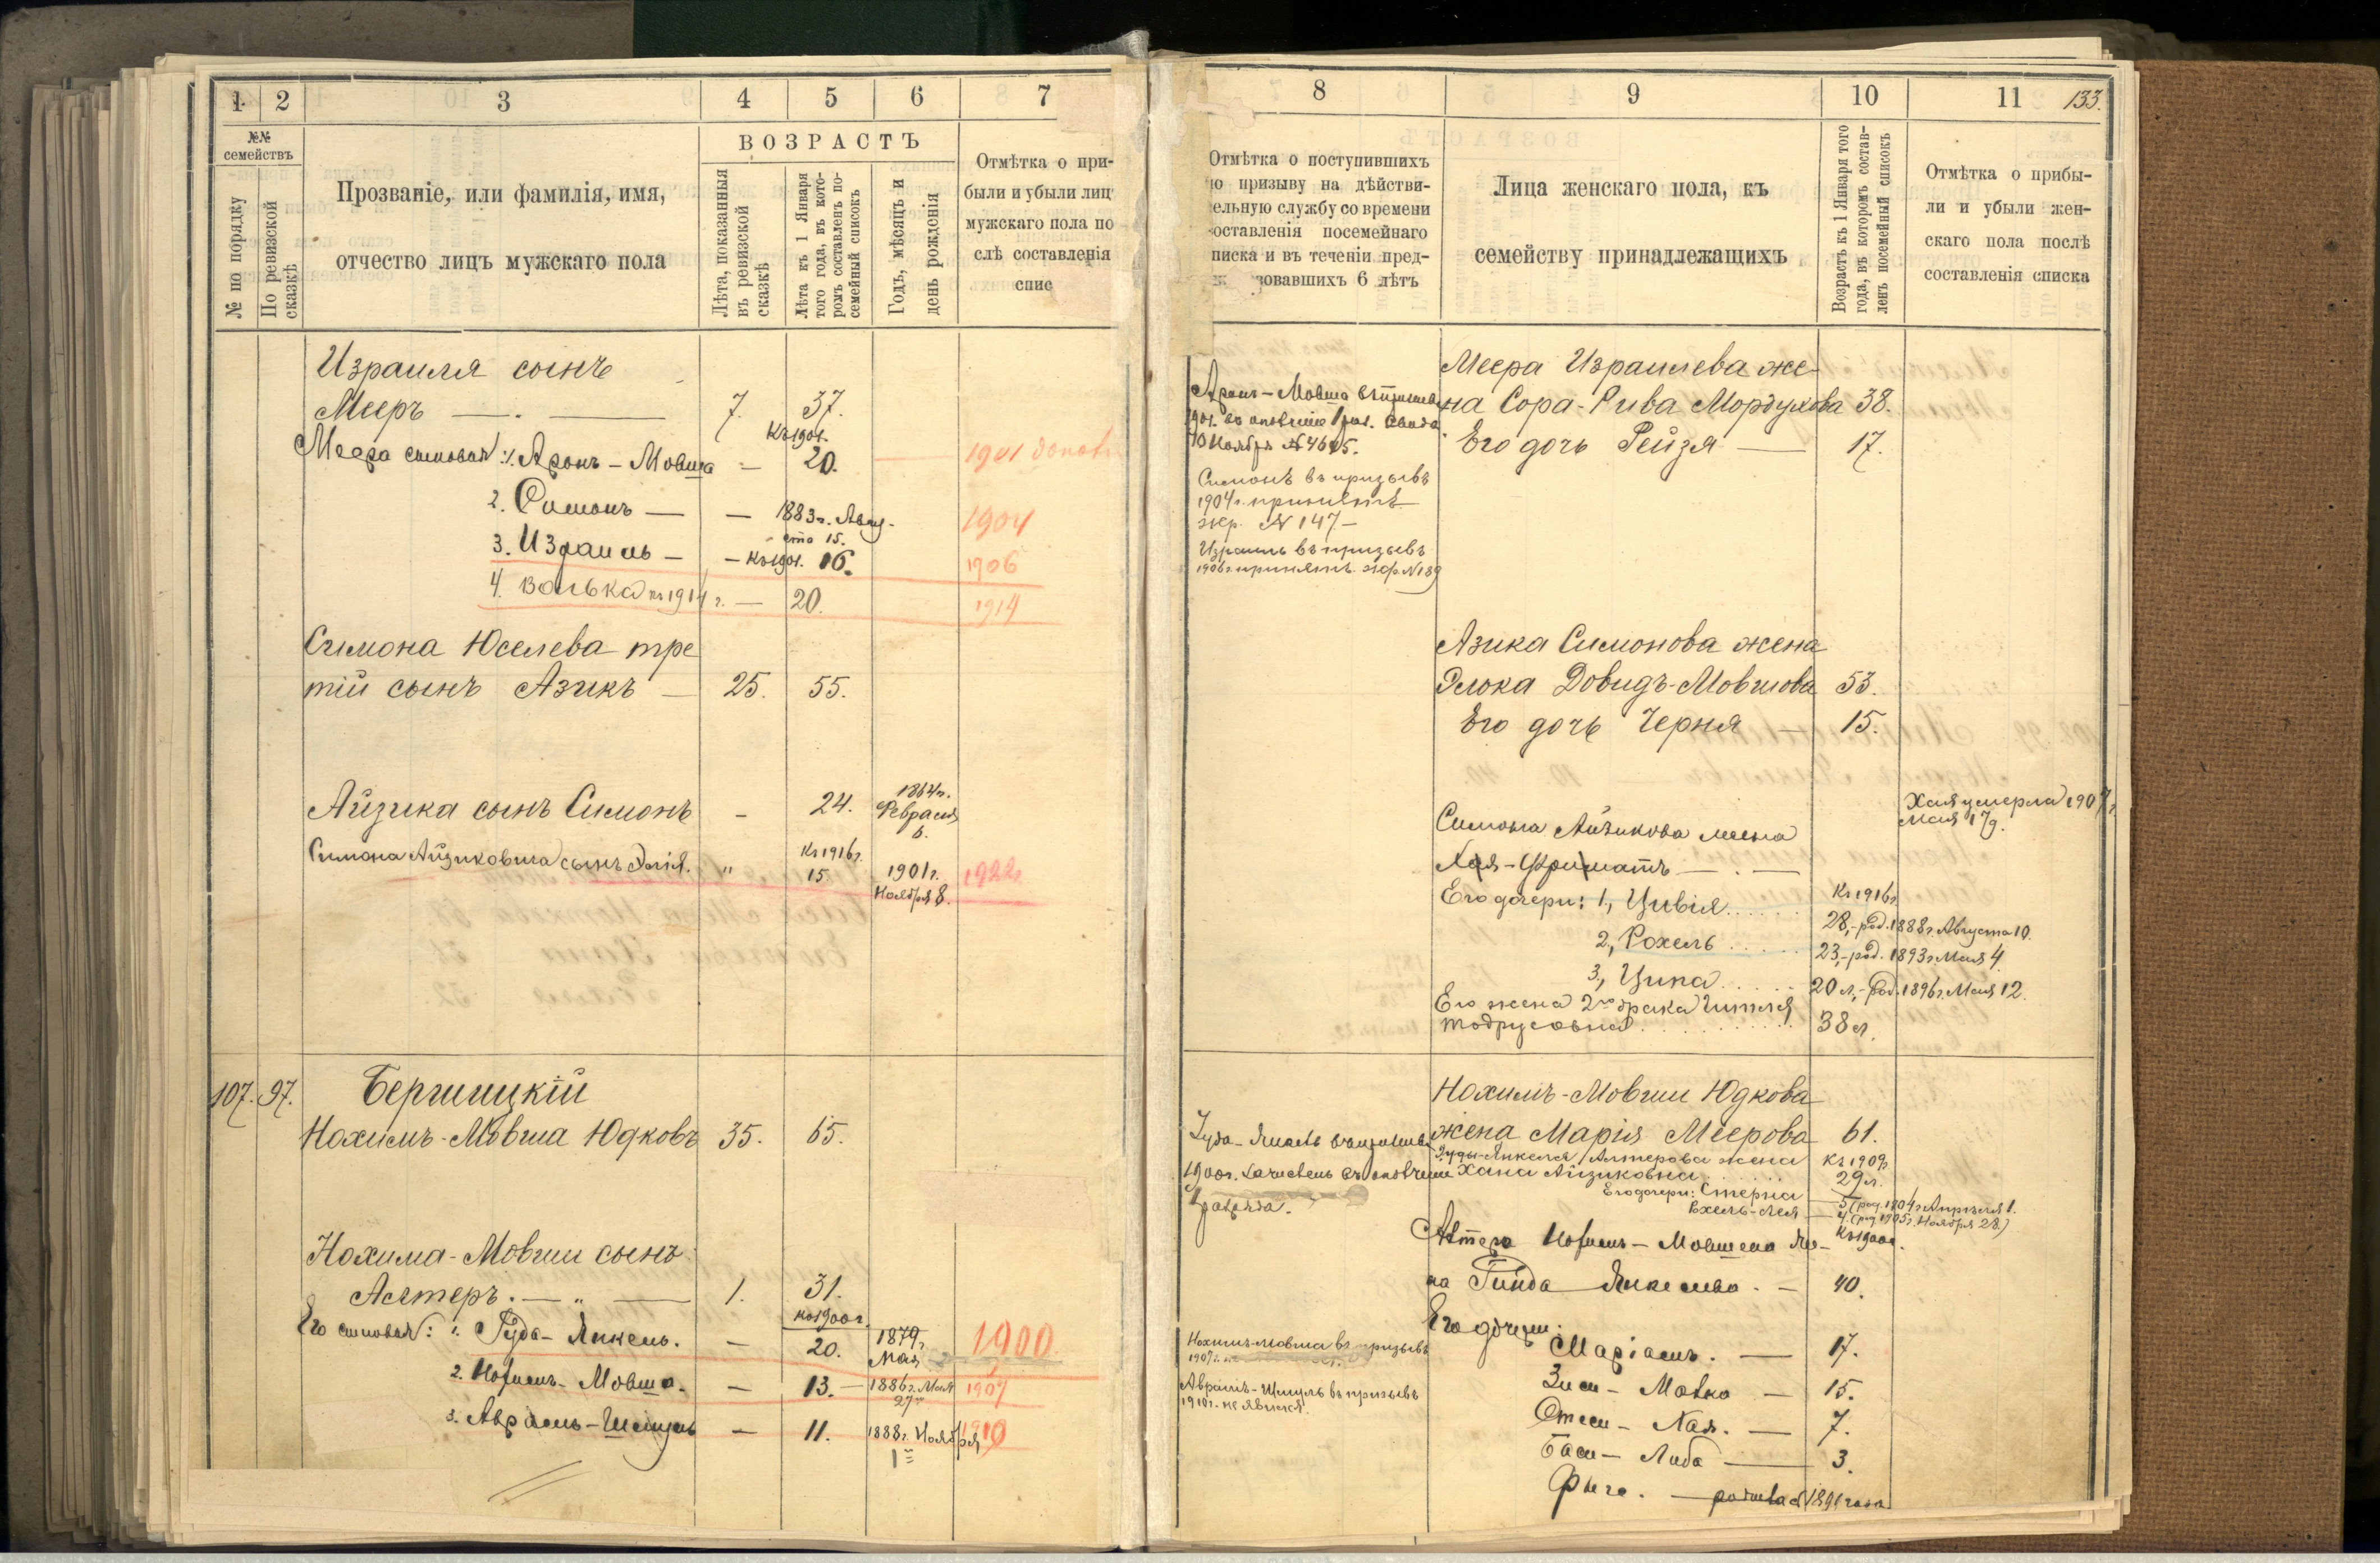 1 2 3 4 5 6 7
№№ семействъ
№ по порядку
По ревизской сказкѣ
Прозваніе, или фамилія, имя,
отчество лицъ мужскаго пола
ВОЗРАСТЪ
Лѣта, показанныя
въ ревизской
сказкѣ
Лѣта къ 1 Января
того года, въ кото-
ромъ составленъ по-
семейный списокъ
Годъ, мѣсяцъ и
день рожденія
Отмѣтка о при-
были и убыли лиц
мужскаго пола по
слѣ составленія
спис
Израиля сынъ
Мееръ — . — 7. 37.
Къ 1901.
Меера сыновья: 1. Аронъ-Мовша — 20. 1901
2. Симонъ — — 1883 г. Авгу-
ста 15. 1904
3. Израиль — — Къ 1901. 16. 1906
4. Волька къ 1914 г. — 20. 1914
Симона Юселева тре
тій сынъ Азикъ — 25. 55.
Айзика сынъ Симонъ - 24. 1864 г.
Февраля
6.
Симона Айзиковича сынъ Элія. " Къ 1916 г.
15 1901 г.
Ноября 8. 1922 г.
107. 97. Бершицкій
Нохимъ-Мовша Юдковъ 35. 65.
Нохима-Мовши сынъ
Алтеръ. — " — 1. 31.
къ 1900 г.
Его сыновья: 1. Іуда-Янкель. — 20. 1879 г.
Мая 1900
2. Нохимъ-Мовша. — 13. — 1886 г. Мая
27 1907
3. Авраамъ-Шмуль — 11. 1888 г. Ноября
1 1910
8 9 10 11 133.
Отмѣтка о поступившихъ
о призыву на дѣйстви-
ельную службу со времени
оставленія посемейнаго
писка и въ теченіи пред-
зовавшихъ 6 лѣтъ
Лица женскаго пола, къ
семейству принадлежащихъ
Возрастъ къ 1 Января того
года, въ которомъ состав-
ленъ посемейный списокъ
Отмѣтка о прибы-
ли и убыли жен-
скаго пола послѣ
составленія списка
Меера Израилева же-
Аронъ-Мовша въ
на Сора-Рива Мордухова 38.
10 Ноября № 4615.
Его дочь Рейзя — 17.
Симонъ въ призывъ
1904 г. принятъ
жер. № 147 —
Израиль въ призывъ
1906 г. принятъ. жер № 189
Азика Симонова жена
Элока Довидъ-Мовшова 53.
Его дочь Черня — 15.
Симона Айзикова жена
Хая умерла 1907 г.
Мая 17 д.
Хая-Фрума — . —
Его дочери: 1, Цивія Къ 1916 г.
28,-род. 1888 г. Августа 10.
2, Рохель 23,-род. 1893 г. Мая 4.
3, Ципа 20 л,-род. 1896 г. Мая 12.
Его жена 2го брака Гитля
Тодрусовна 38 л.
Нохимъ-Мовши Юдкова
жена Марія Меерова 61.
Іуда-Янкель въ призывъ
1900 г. зачисленъ въ ополченіе
разряда.
Іуды-Янкеля Алтерова жена Къ 1909 г.
Хана Айзиковна 29 л.
Его дочери: Стерна 5 (род. 1904 г. Апрѣля 1.
Рохель-Лея 4 (род. 1905 г. Ноября 28.)
Алтера Нохимъ-Мовшева же- Къ 1900 г.
на Гинда Янкелева. — 40.
Его дочери:
Маріамъ. — 17.
Зися-Мовка — 15.
Стеси-Хая. — 7.
Баси-Либа — 3.
Фыга. — родилась 1899 года
Нохимъ-Мовша въ призывъ
1907 г.
Авраамъ-Шмуль въ призывъ
1910 г. не явился.